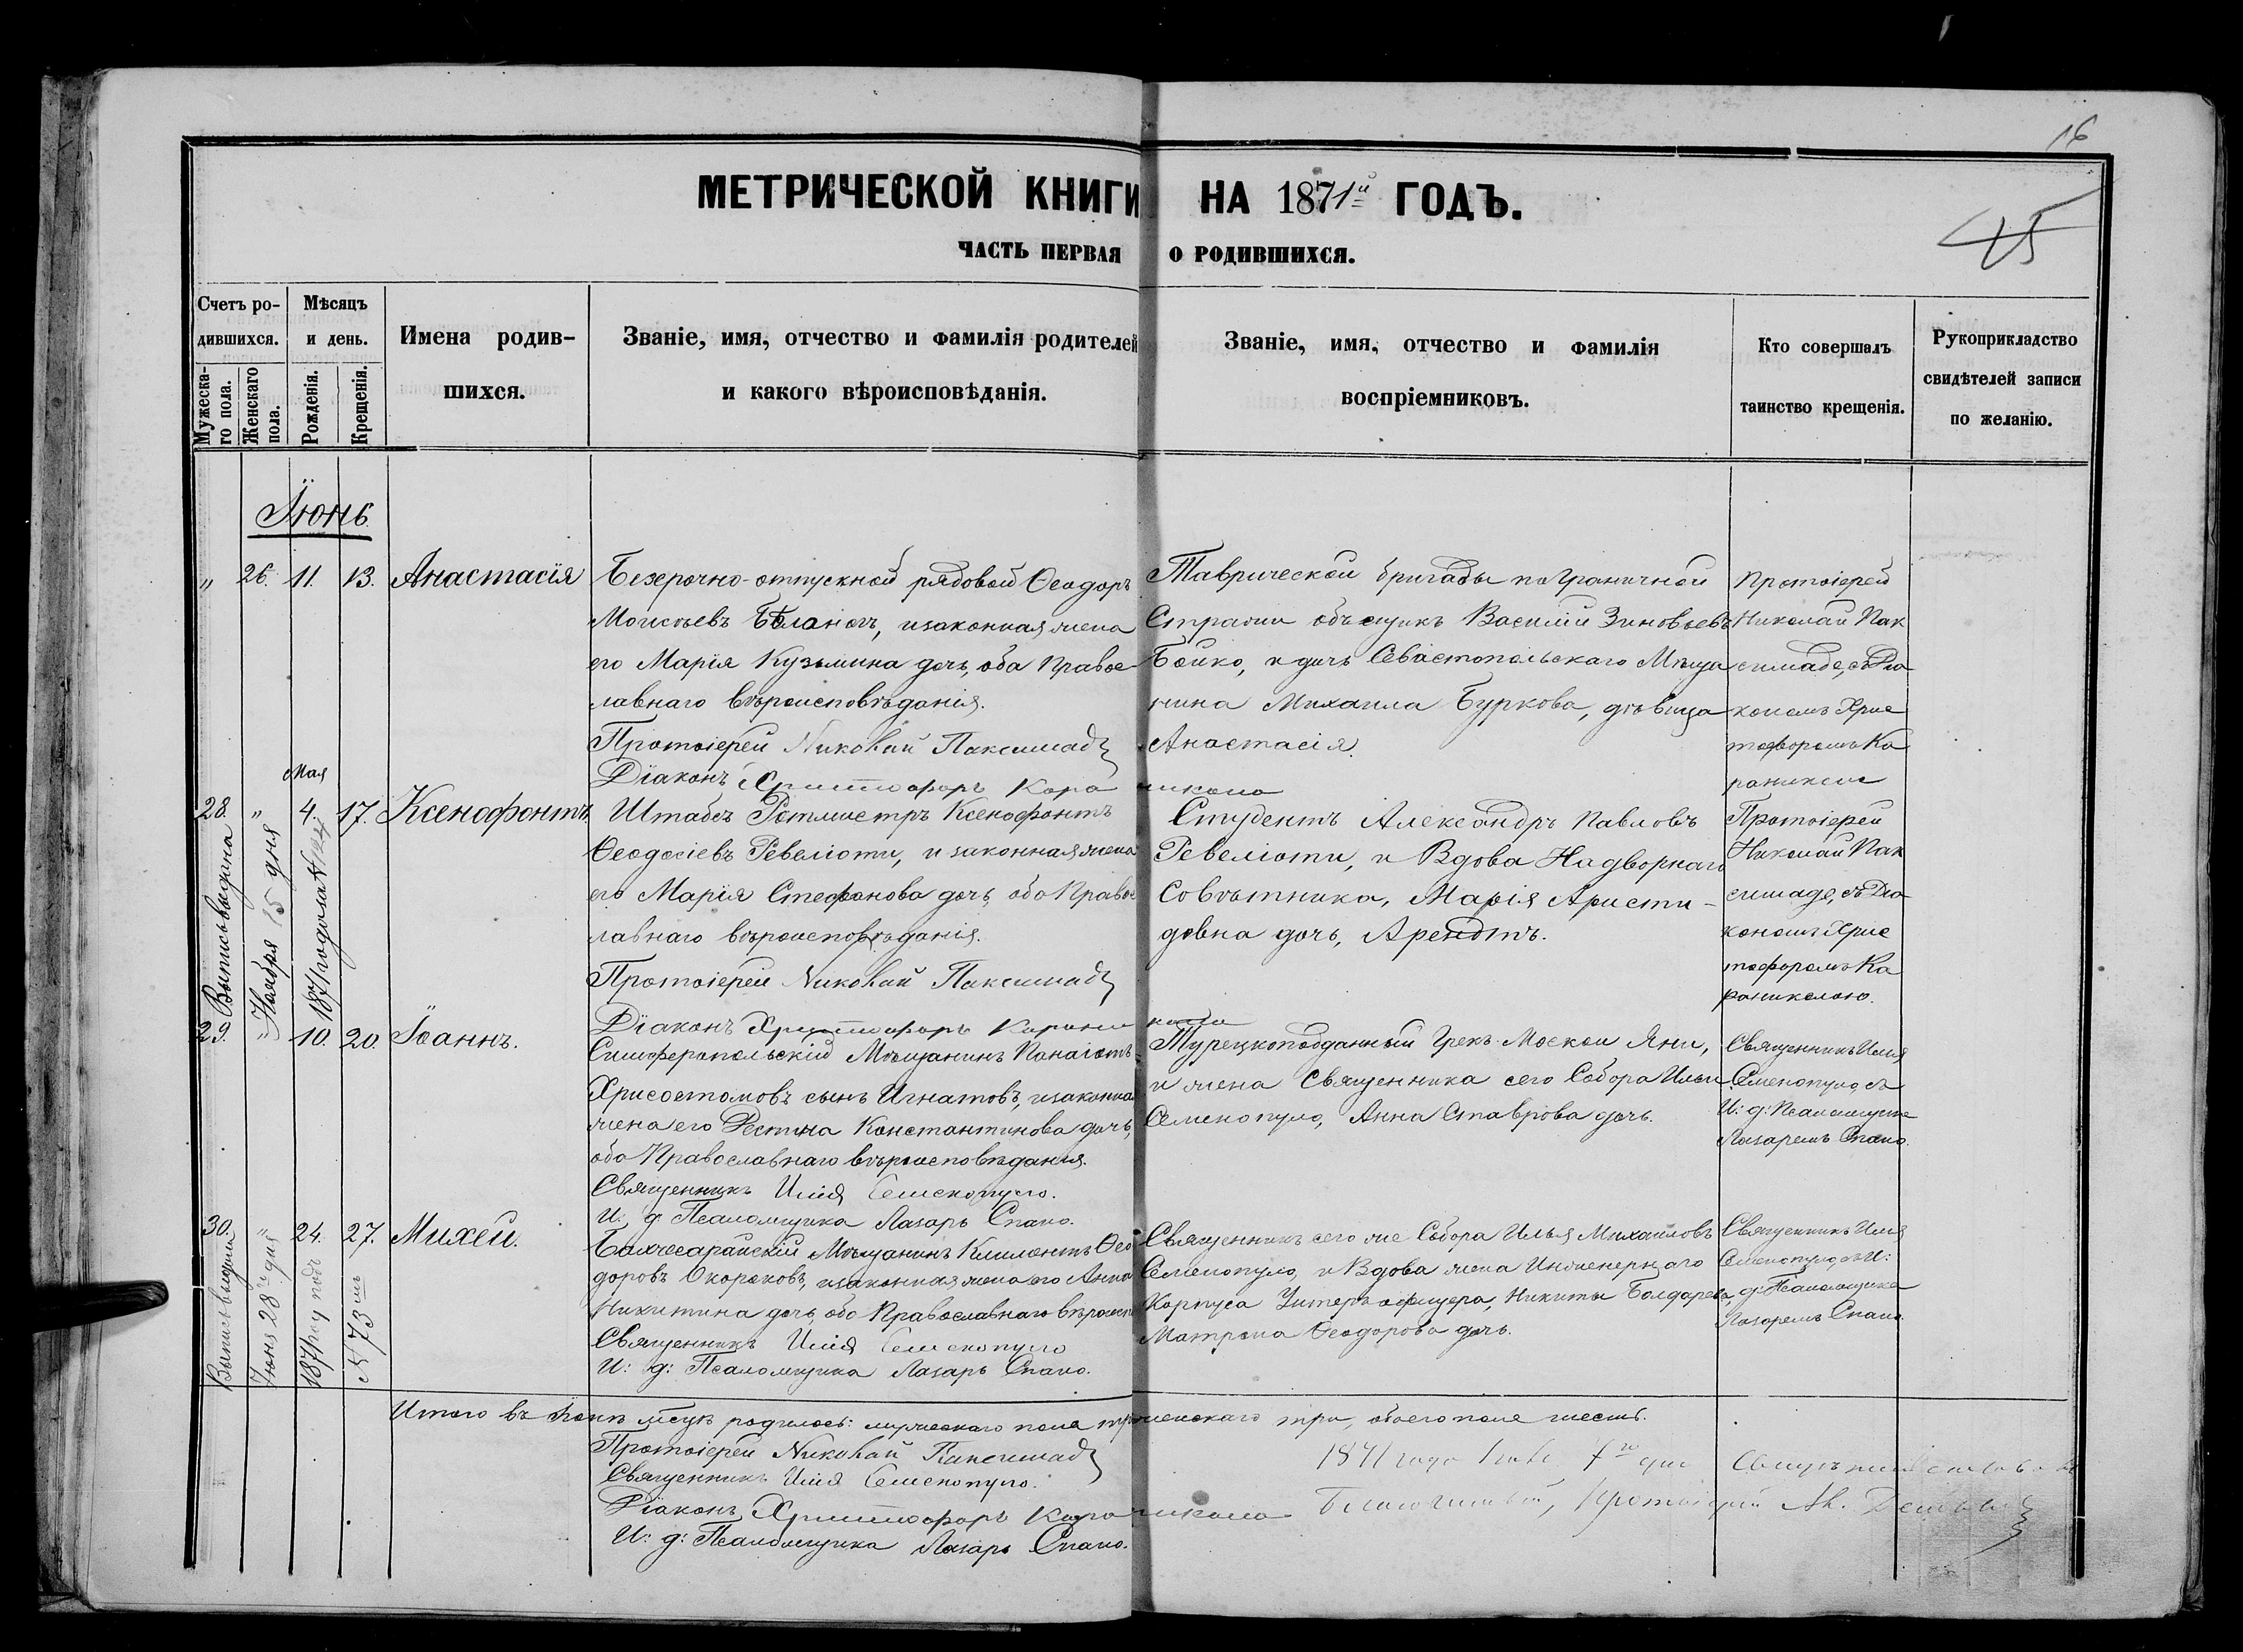 16
МЕТРИЧЕСКОЙ КНИГИ НА 1871й ГОДЪ.
45
ЧАСТЬ ПЕРВАЯ О РОДИВШИХСЯ.
Счетъ ро-
дившихся.
Мужеска-
го пола.
Женскаго
пола.
Мѣсяцъ
и день.
Рожденія.
Крещенія.
Имена родив-
шихся.
Званіе, имя, отчество и фамилія родителей
и какого вѣроисповѣданія.
Званіе, имя, отчество и фамилія
воспріемниковъ.
Кто совершалъ
таинство крещенія.
Рукоприкладство
свидѣтелей записи
по желанію.
Іюнь
" 26. 11. 13. Анастасія
Безсрочно-отпускной рядовой Ѳеодоръ
Моисѣевъ, изаконная жена
его Марія Кузьмина дочь, оба Правос-
лавнаго вѣроисповѣданія.
Протоіерей Николай Паксимадъ
Діаконъ Христофоръ Кораникола
Таврической бригады пограничной
Стражи объезщикъ Василій Зиновьевъ
Бойко, и дочь Севастопольскаго Мѣща
нина Михаила Буркова, дѣвица
Анастасія.
Протоіерей
Николай Пак
симаде, съ Діа
кономъ Хрис
тофоромъ Ка
раниколи
Мая
28. " 4. 17. Ксенофонтъ.
Выпись выдана
Ноября 15 дня
1871 года №124
Штабсъ Ротмистръ Ксенофонтъ
Ѳеодосіевъ Ревеліоти, и законная жена
его Марія Стефанова дочь, оба Правос
лавнаго вѣроисповѣданія.
Протоіерей Николай Паксимадъ
Діаконъ Христофоръ Кораникола
Студентъ Александръ Павловъ
Ревеліоти, и Вдова Надворнаго
Совѣтника, Марія Аристи-
довна дочь, Арендтъ.
Протоіерей
Николай Пак
симаде, съ Діа
кономъ Хрис
тофоромъ Ка
раниколою.
29. " 10. 20. Іоаннъ.
Симферопольскій Мѣщанинъ Панаіотъ
Хрисостомовъ сынъ Игнатовъ, изаконная
жена его Константинова дочь,
оба Православнаго вѣроисповѣданія.
Священникъ Илія Семенопуло.
И: д: Псаломщика Лазарь Спано.
Турецкоподданный Грекъ Москои Яни,
и жена Священника сего Собора Ильи
Семенопуло, Анна Ставрова дочь.
Священникъ Илія
Семенопуло, съ
И: д: Псаломщика
Лазаремъ Спано.
30. " 24. 27. Михей.
Выпись выдана
Іюня 28го дня
1871 году подъ
№ 73мъ
Бахчесарайскій Мѣщанинъ Климентъ Ѳео
доровъ Окороковъ, изаконная жена его Анна
Никитина дочь, оба Православнаго вѣроисп
Священникъ Илія Семенопуло
И: д: Псаломщика Лазарь Спано.
Священникъ сего же Собора Илья Михаиловъ
Семенопуло, и Вдова жена Инженернаго
Корпуса Унтеръ офицера, Никиты Болдарева,
Матрона Ѳеодорова дочь.
Священникъ Илія
Семенопуло, съ И:
д: Псаломщика
Лазаремъ Спано.
Итого въ Іюнѣ мѣсяцѣ родилось: мужескаго пола три женскаго три, обоего пола шесть.
Протоіерей Николай Паксимадъ
Священникъ Илія Семенопуло.
Діаконъ Христофоръ Кораникола
И: д: Псаломщика Лазарь Спано.
1871 года 7го дня
Благочинный, Протоіерей